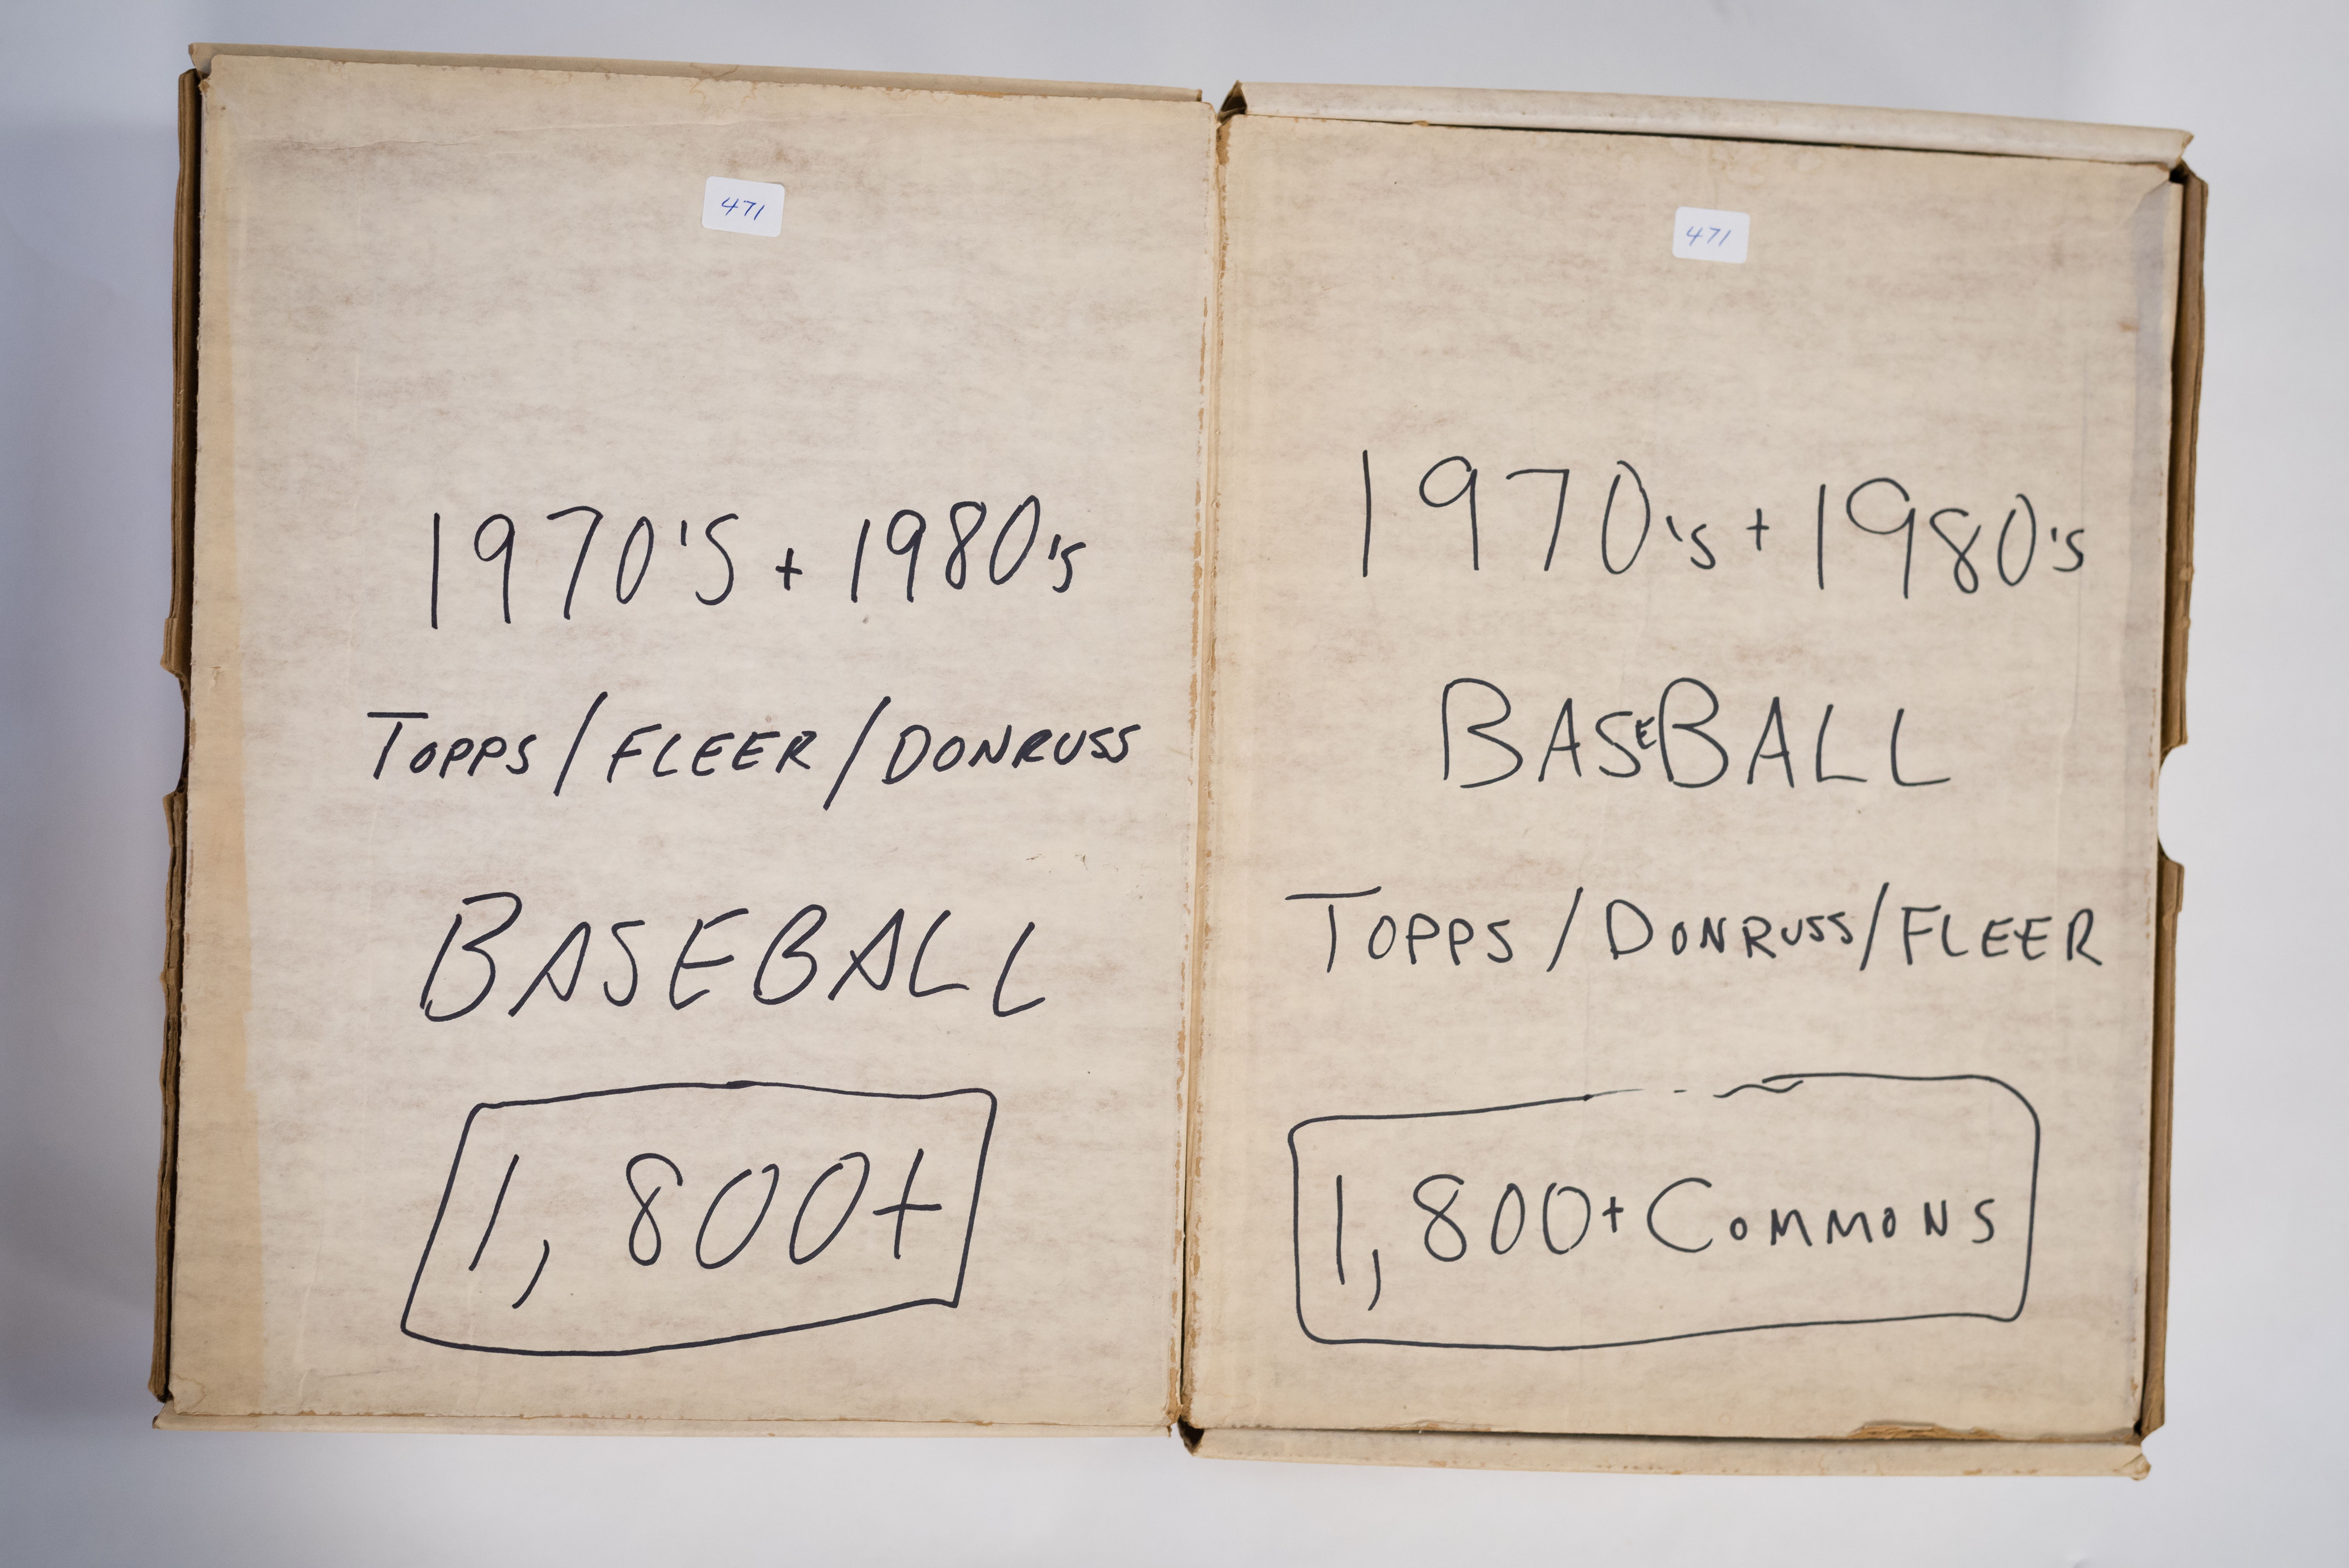 471
1970'S + 1980's
TOPPS / FLEER / DONRUSS
BASEBALL
1,800+
471
1970's + 1980's
BASEBALL
TOPPS / DONRUSS / FLEER
1,800+ COMMONS